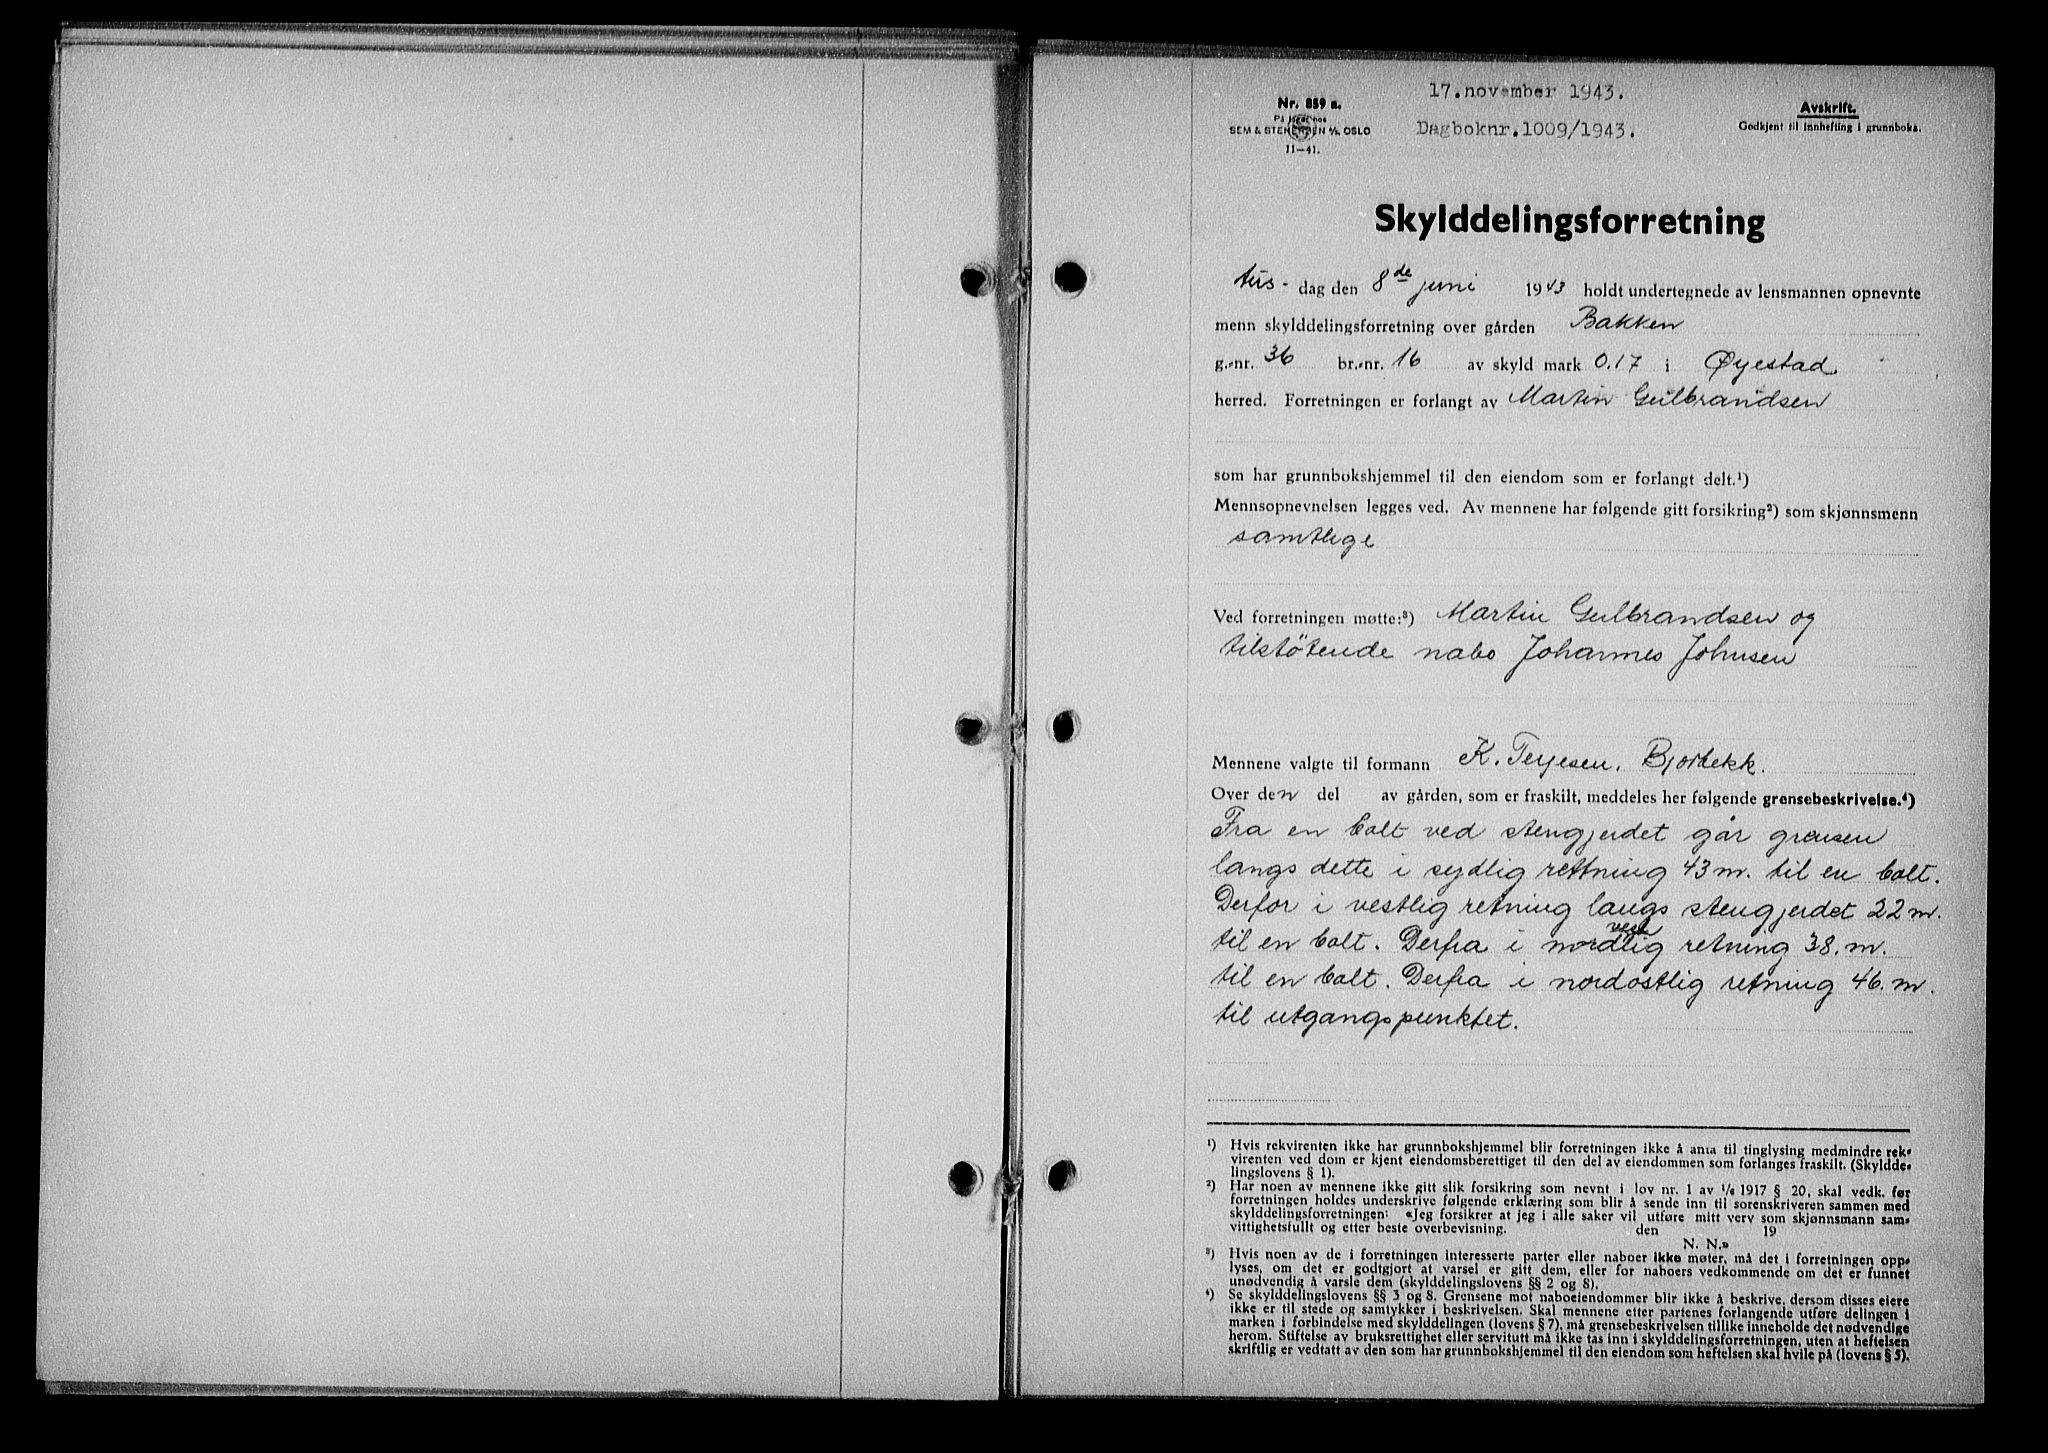 17.november 1943.
Nr. 859 a.
På lager hos
SEM & STENERSEN A/S OSLO
11-41.
Dagboknr.1009/1943.
Avskrift.
Godkjent til innhefting i grunnboka.
Skylddelingsforretning
tirs- dag den 8de juni 1943 holdt undertegnede av lensmannen opnevnte
menn skylddelingsforretning over gården Bakken
g.-nr. 36 br.-nr. 16 av skyld mark 0.17 i Øyestad
herred. Forretningen er forlangt av Martin Gulbrandsen
som har grunnbokshjemmel til den eiendom som er forlangt delt.¹)
Mennsopnevnelsen legges ved. Av mennene har følgende gitt forsikring²) som skjønnsmenn
samtlige
Ved forretningen møtte:³) Martin Gulbrandsen og
tilstøtende nabo Johannes Johnsen
Mennene valgte til formann K. Terjesen. Bjorbekk.
Over den del av gården, som er fraskilt, meddeles her følgende grensebeskrivelse.⁴)
Fra en bolt ved stengjerdet går grensen
langs dette i sydlig rettning 43 m. til en bolt.
Derfor i vestlig retning langs stengjerdet 22 m.
til en bolt. Derfra i nordvestlig retning 38. m.
til en bolt. Derfra i nordostlig retning 46. m.
til utgangspunktet.
¹) Hvis rekvirenten ikke har grunnbokshjemmel blir forretningen ikke å anta til tinglysing medmindre rek-
virenten ved dom er kjent eiendomsberettiget til den del av eiendommen som forlanges fraskilt. (Skyldde-
lingslovens § 1).
²) Har noen av mennene ikke gitt slik forsikring som nevnt i lov nr. 1 av 1/6 1917 § 20, skal vedk. før
forretningen holdes underskrive følgende erklæring som blir å sende inn til sorenskriveren sammen med
skylddelingsforretningen: «Jeg forsikrer at jeg i alle saker vil utføre mitt verv som skjønnsmann sam-
vittighetsfullt og etter beste overbevisning. den 19
N. N.»
³) Hvis noen av de i forretningen interesserte parter eller naboer ikke møter, må det i forretningen opp-
lyses, om det er godtgjort at varsel er gitt dem, eller for naboers vedkommende om det er funnet
unødvendig å varsle dem (skylddelingslovens §§ 2 og 8).
⁴) Se skylddelingslovens §§ 3 og 8. Grensene mot naboeiendommer blir ikke å beskrive, dersom disses eiere
ikke er til stede og samtykker i beskrivelsen. Skal mennene etter partenes forlangende utføre delingen i
marken i forbindelse med skylddelingen (lovens § 7), må grensebeskrivelsen tillike inneholde det nødvendige
herom. Stiftelse av bruksrettighet eller servitutt må ikke tas inn i skylddelingsforretningen, uten at heftelsen
skriftlig er vedtatt av den som har grunnbokshjemmel til den eiendom som heftelsen skal hvile på (lovens § 5).